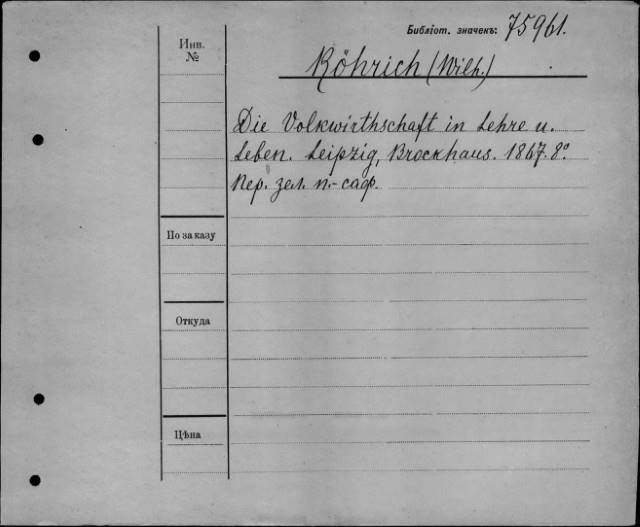 Библіот. значекъ: 75961.
Инв. №
Röhrich (Wilh.)
Die Volkwirthschaft in Lehre u.
Leben. Leipzig, Brockhaus. 1867. 8º.
Пер. зел. п.-саф.
По заказу
Откуда
Цѣна